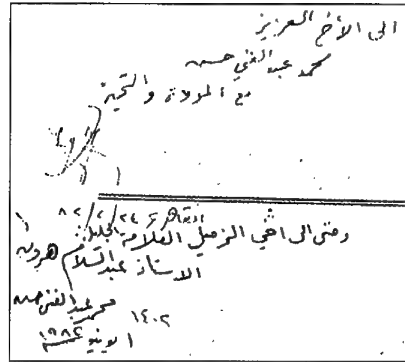 الى الأخ العزيز
محمد عبد الغني حسن
مع المودة والتحية
القاهرة ٢٤/٦/٨٢
ومنى الى اخي الزميل العلامة الجليل
الاستاذ عبد السلام هرون
محمد عبد الغني حسن
١٤٠٢
يونيو ١٩٨٢